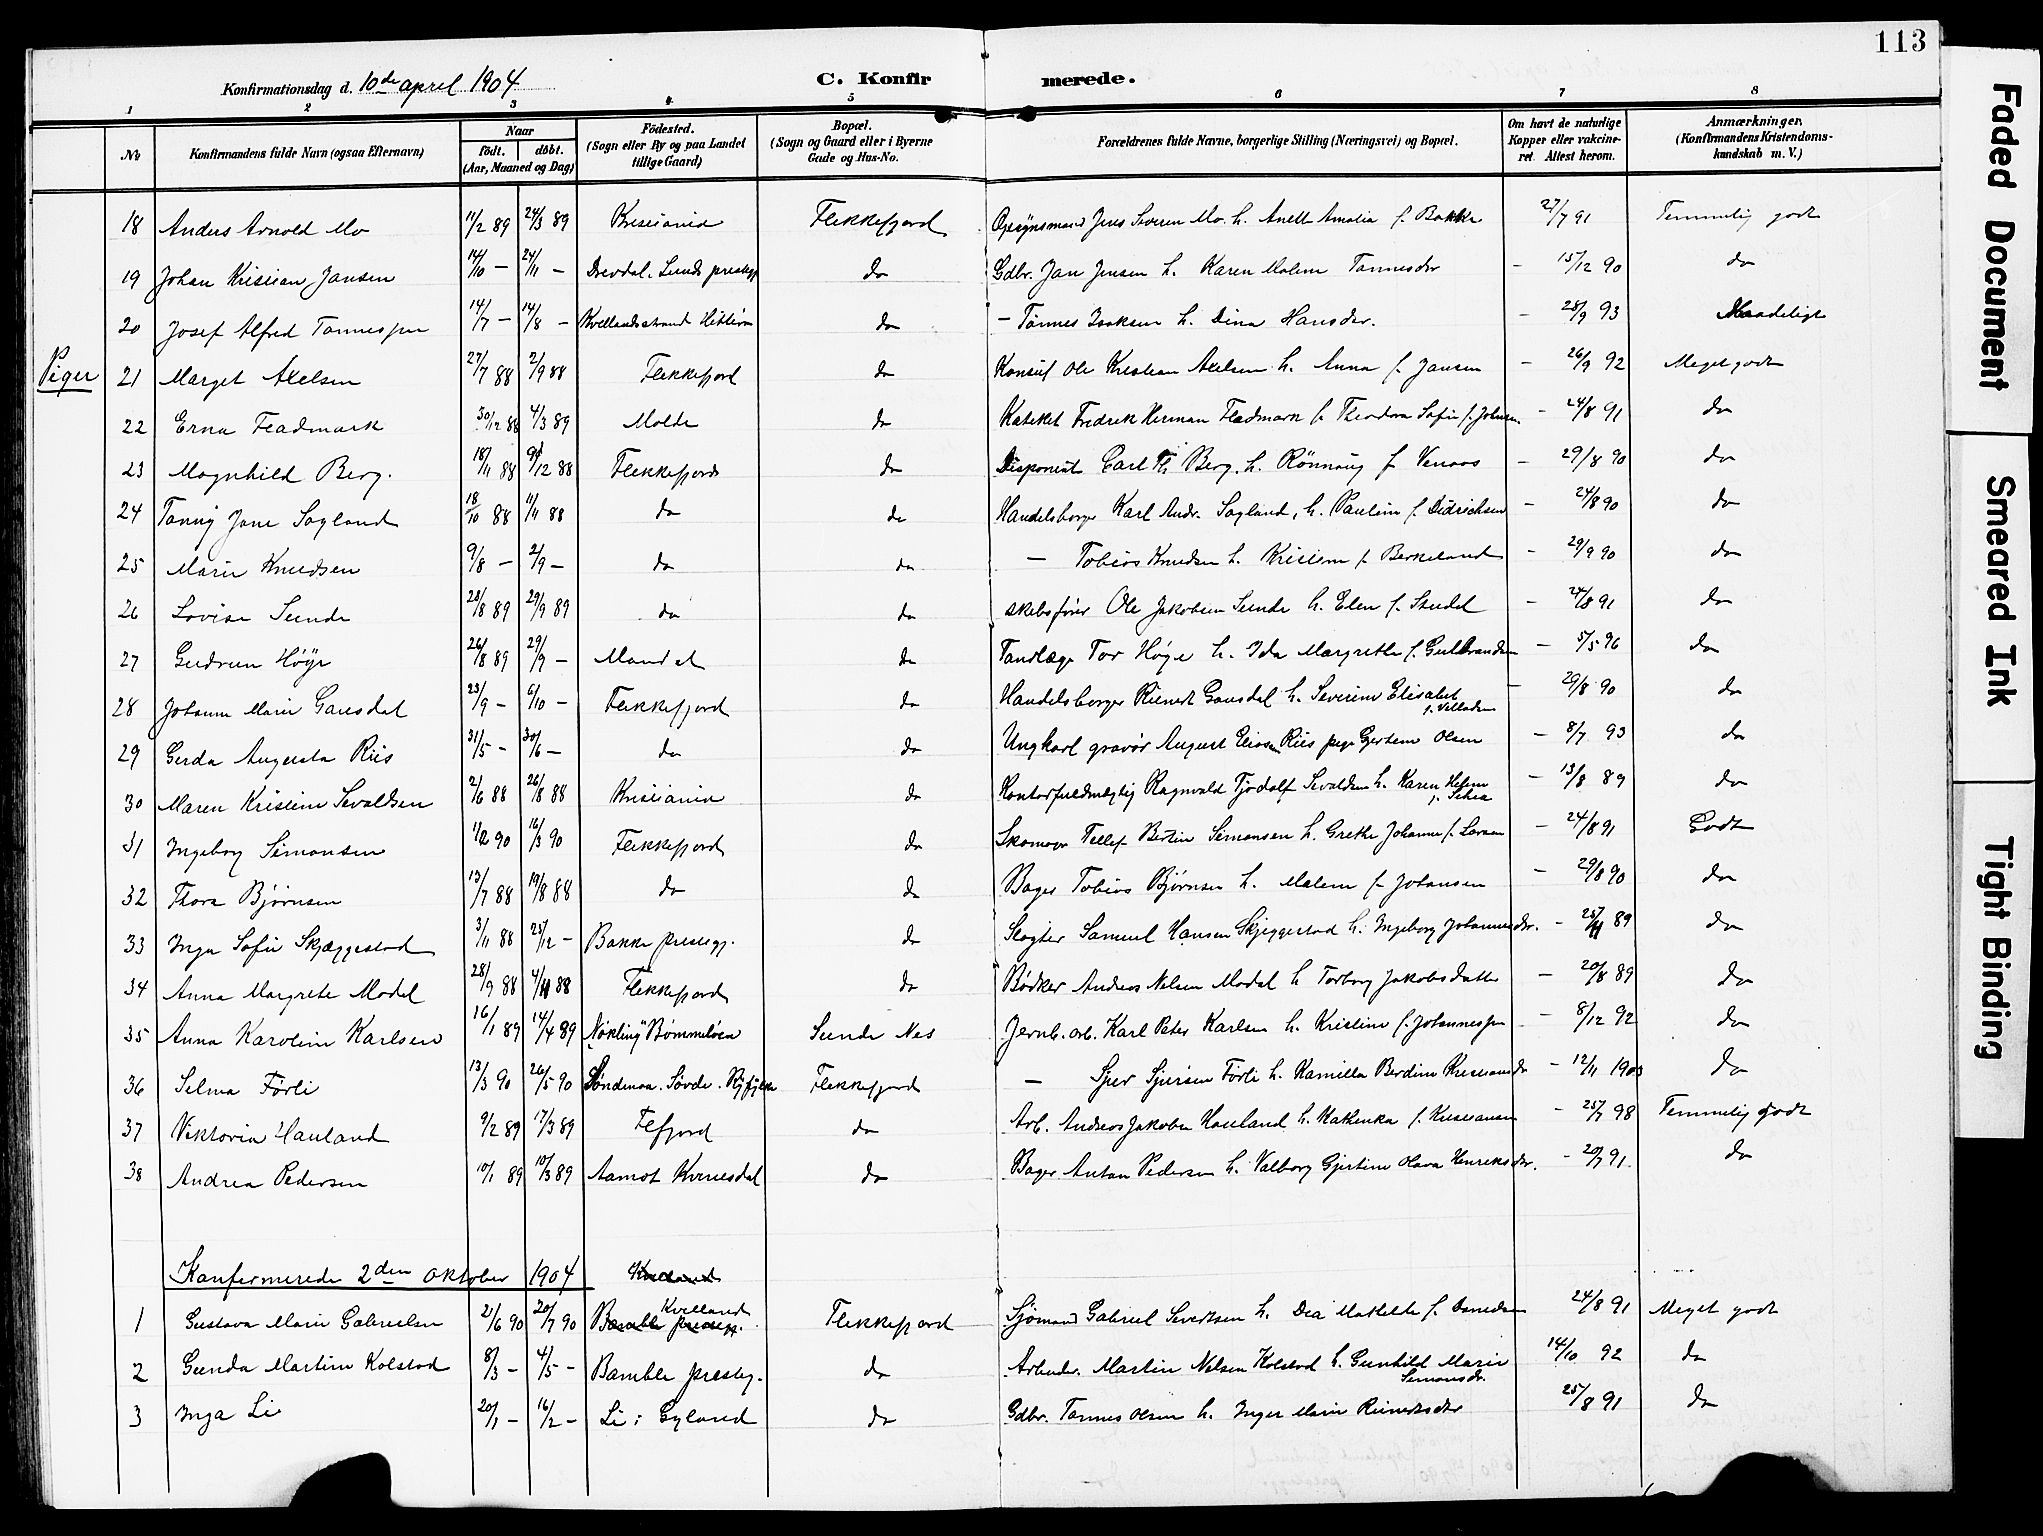 113
Konfirmationsdag d. 10de april 1904
C. Konfirmerede.
1 2 3 4 5 6 7 8
No
Konfirmandens fulde Navn (ogsaa Efternavn)
Naar
födt. döbt.
(Aar, Maaned og Dag)
Födested.
(Sogn eller By og paa Landet
tillige Gaard)
Bopæl.
(Sogn og Gaard eller i Byerne
Gade og Hus-No.
Forældrenes fulde Navne, borgerlige Stilling (Næringsvei) og Bopæl.
Om havt de naturlige
Kopper eller vakcine-
ret. Attest herom.
Anmærkninger.
(Konfirmandens Kristendoms-
kundskab m. V.)
18 Anders Arnold Mo 11/2 89 24/3 89 Kristiania Flekkefjord Opsynsmand Jens Severin Mo. h. Anett Amalia f. Bakke 27/7 91 Temmelig godt
19 Johan Kristian Jansen 14/10 — 24/11 — Drevdal. Lunds prestegj do Gdbr. Jan Jensen h. Karen Malene Tønnesdtr — 15/12 90 do
20 Josef Alfred Tønnessen 14/7 — 14/8 — Kvellandstrand Hitterø do — Tönnes Isaksen h. Dina Hansdtr. — 28/9 93 Maadeligt
Piger 21 Marget Axelsen 27/7 88 2/9 88 Flekkefjord do Konsul Ole Kristian Axelsen h. Anna f. Jansen — 26/9 92 Meget godt
22 Erna Fladmark 30/12 88 4/3 89 Molde do Kateket Fredrik Herman Fladmark h. Theodora Sofie f. Johnsen — 24/8 91 do
23 Magnhild Berg. 18/11 88 9/12 88 Flekkefjord do Disponent Carl Th Berg. h. Rönnaug f. Venaas — 29/8 90 do
24 Fanny Jane Søyland 18/10 88 11/11 88 do do Handelsborger Karl Andr. Søyland, h. Pauline f. Didrichsen — 24/8 90 do
25 Marie Knudsen 9/8 — 2/9 — do do — Tobias Knudsen h. Kristine f. Berkeland — 29/9 90 do
26 Lovise Sunde 28/8 89 29/9 89 do do skibsförer Ole Jakobsen Sunde h. Elen f. — 24/8 91 do
27 Gudrun Höye 26/8 89 29/9 — Mandal do Tandlæge Tor Höye h. Ida Margrethe f. Gulbrandsen — 5/5 96 do
28 Johanne Marie Gausdal 23/9 — 6/10 — Flekkefjord do Handelsborger Reinert Gausdal h. Severine Elisabet — 29/8 90 do
29 Gerda Augusta Riis 31/5 — 30/6 — do do Ungkarl gravör August Riis pige Gjertine Olsen — 8/7 93 do
30 Maren Kristine Sevaldsen 2/6 88 26/8 88 Kristiania do Kontorfuldmægtig Ragnvald Tjodolf Sevaldsen h. Karen Helene — 13/8 89 do
31 Ingeborg Simonsen 1/2 90 16/3 90 Flekkefjord do Skomager Tellef Bertin Simonsen h. Grethe Johanne f. Larsen — 24/8 91 Godt
32 Thora Björnsen 13/7 88 19/8 88 do do Bager Tobias Björnsen h. Malene f. Johansen — 29/8 90 do
33 Inga Sofie Skjæggestad 3/11 88 23/12 — Bakke prestegj. do Slagter Samuel Hansen Skjeggestad h. Ingeborg Johannesdtr. — 25/11 89 do
34 Anna Margrete Modal 28/9 88 4/11 88 Flekkefjord do Bödker Andreas Nelsen Modal h Torborg Jakobsdatter — 20/8 89 do
35 Anna Karoline Karlsen 16/1 89 14/4 89 "Nökling" Bömmeløen Sunde Nes Jernb. arb. Karl Peter Karlsen h. Kristine f. Johannessen — 8/12 92 do
36 Selma Förli 13/3 90 26/5 90 Söndenaa. Sövde. Ryfylke Flekkefjord — Sjur Sjursen Förli h. Kamilla Berdine Kristiansdr — 12/11 1903 do
37 Viktoria Hauland 9/2 89 17/3 89 Flfjord do Arb. Andreas Jakobsen Hauland h. Kathinka f. Kristiansen — 25/7 98 Temmelig godt
38 Andrea Pedersen 10/1 89 10/3 89 Aamot Kvinesdal do Bager Anton Pedersen h. Valborg Gjertine Olava Henriksdtr. — 20/7 91. do
Konfermerede 2den oktober 1904
Kvelland
1 Gustava Marie Gabrielsen 21/6 90 20/7 90 Bamble prestegj. Flekkefjord Sjömand Gabriel Severtsen h. Dea Mathilde f. 24/8 91 Meget godt
2 Gunda Martine Kolstad 8/3 — 4/5 — Bamble prestegj. do Arbeider. Martin Nelsen Kolstad h. Gunhild Marie 14/10 92 do
Simonsdr.
3 Inga Li 20/1 — 16/2 — Li i Gyland do Gdbr. Tønnes Olsen h. Inger Marie Reinertsdtr 25/8 91 do
Faded Document
Smeared Ink
Tight Binding